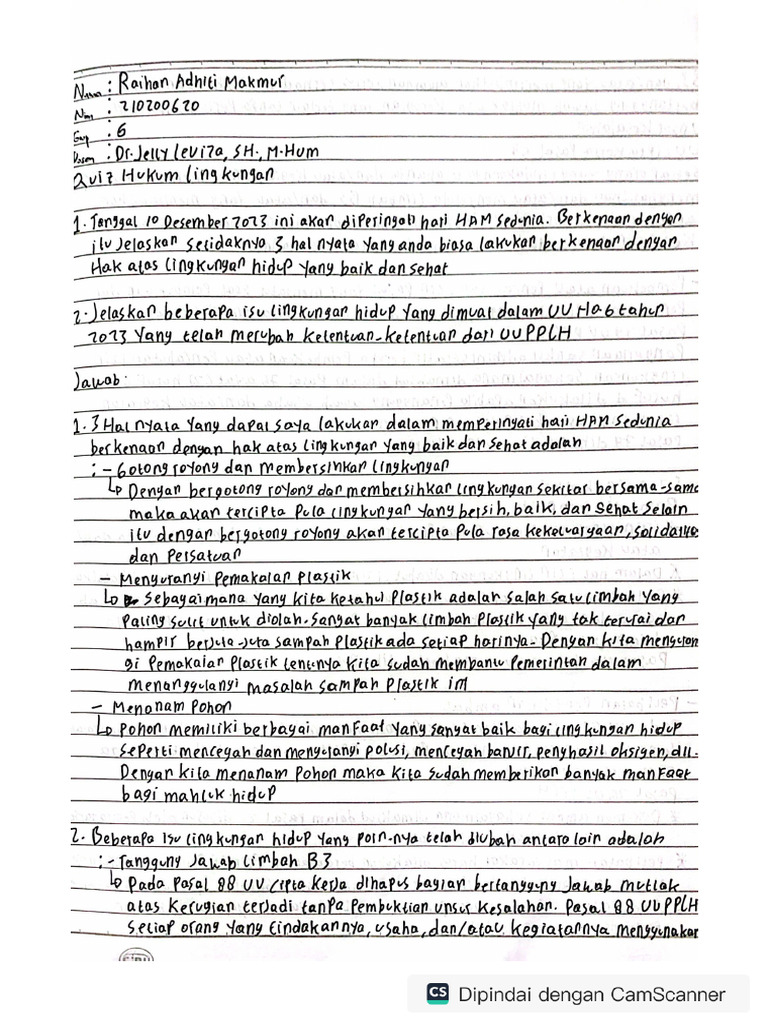 Nama : Raihan Adhiti Makmur
Nim : 210200620
Grup : 6
Dosen : Dr. Jelly Leviza, SH., M.Hum
Quiz Hukum lingkungan
1. Tanggal 10 Desember 2023 ini akan diperingati hari HAM Sedunia. Berkenaan dengan
itu Jelaskan setidaknya 3 hal nyata yang anda biasa lakukan berkenaan dengan
Hak atas lingkungan hidup yang baik dan sehat
2. Jelaskan beberapa isu lingkungan hidup yang dimuat dalam UU No 6 tahun
2023 yang telah merubah ketentuan-ketentuan dari UUPPLH
Jawab :
1. 3 Hal nyata yang dapat saya lakukan dalam memperingati hari HAM Sedunia
berkenaan dengan hak atas lingkungan yang baik dan sehat adalah
: - Gotong royong dan membersihkan lingkungan
↳ Dengan bergotong royong dan membersihkan lingkungan sekitar bersama-sama
maka akan tercipta pula lingkungan yang bersih, baik, dan sehat selain
itu dengan bergotong royong akan tercipta pula rasa kekeluargaan, solidaritas
dan Persatuan
- Mengurangi Pemakaian Plastik
↳ Sebagaimana yang kita ketahui plastik adalah salah satu limbah yang
paling sulit untuk diolah. Sangat banyak limbah plastik yang tak terurai dan
hampir berjuta-juta sampah plastik ada setiap harinya. Dengan kita menguran
gi pemakaian plastik tentunya kita sudah membantu Pemerintah dalam
menanggulangi masalah sampah plastik ini
- Menanam Pohon
↳ Pohon memiliki berbagai manfaat yang sangat baik bagi lingkungan hidup
seperti mencegah dan mengurangi polusi, mencegah banjir, penghasil oksigen, dll.
Dengan kita menanam pohon maka kita sudah memberikan banyak manfaat
bagi mahluk hidup
2. Beberapa isu lingkungan hidup yang poin-nya telah diubah antara lain adalah
: - Tanggung Jawab Limbah B3
↳ Pada Pasal 88 UU Cipta Kerja dihapus bagian bertanggung Jawab mutlak
atas kerugian terjadi tanpa Pembuktian unsur kesalahan. Pasal 88 UUPPLH
setiap orang yang tindakannya, usaha, dan/atau kegiatannya menggunakan
SIDU
CS Dipindai dengan CamScanner